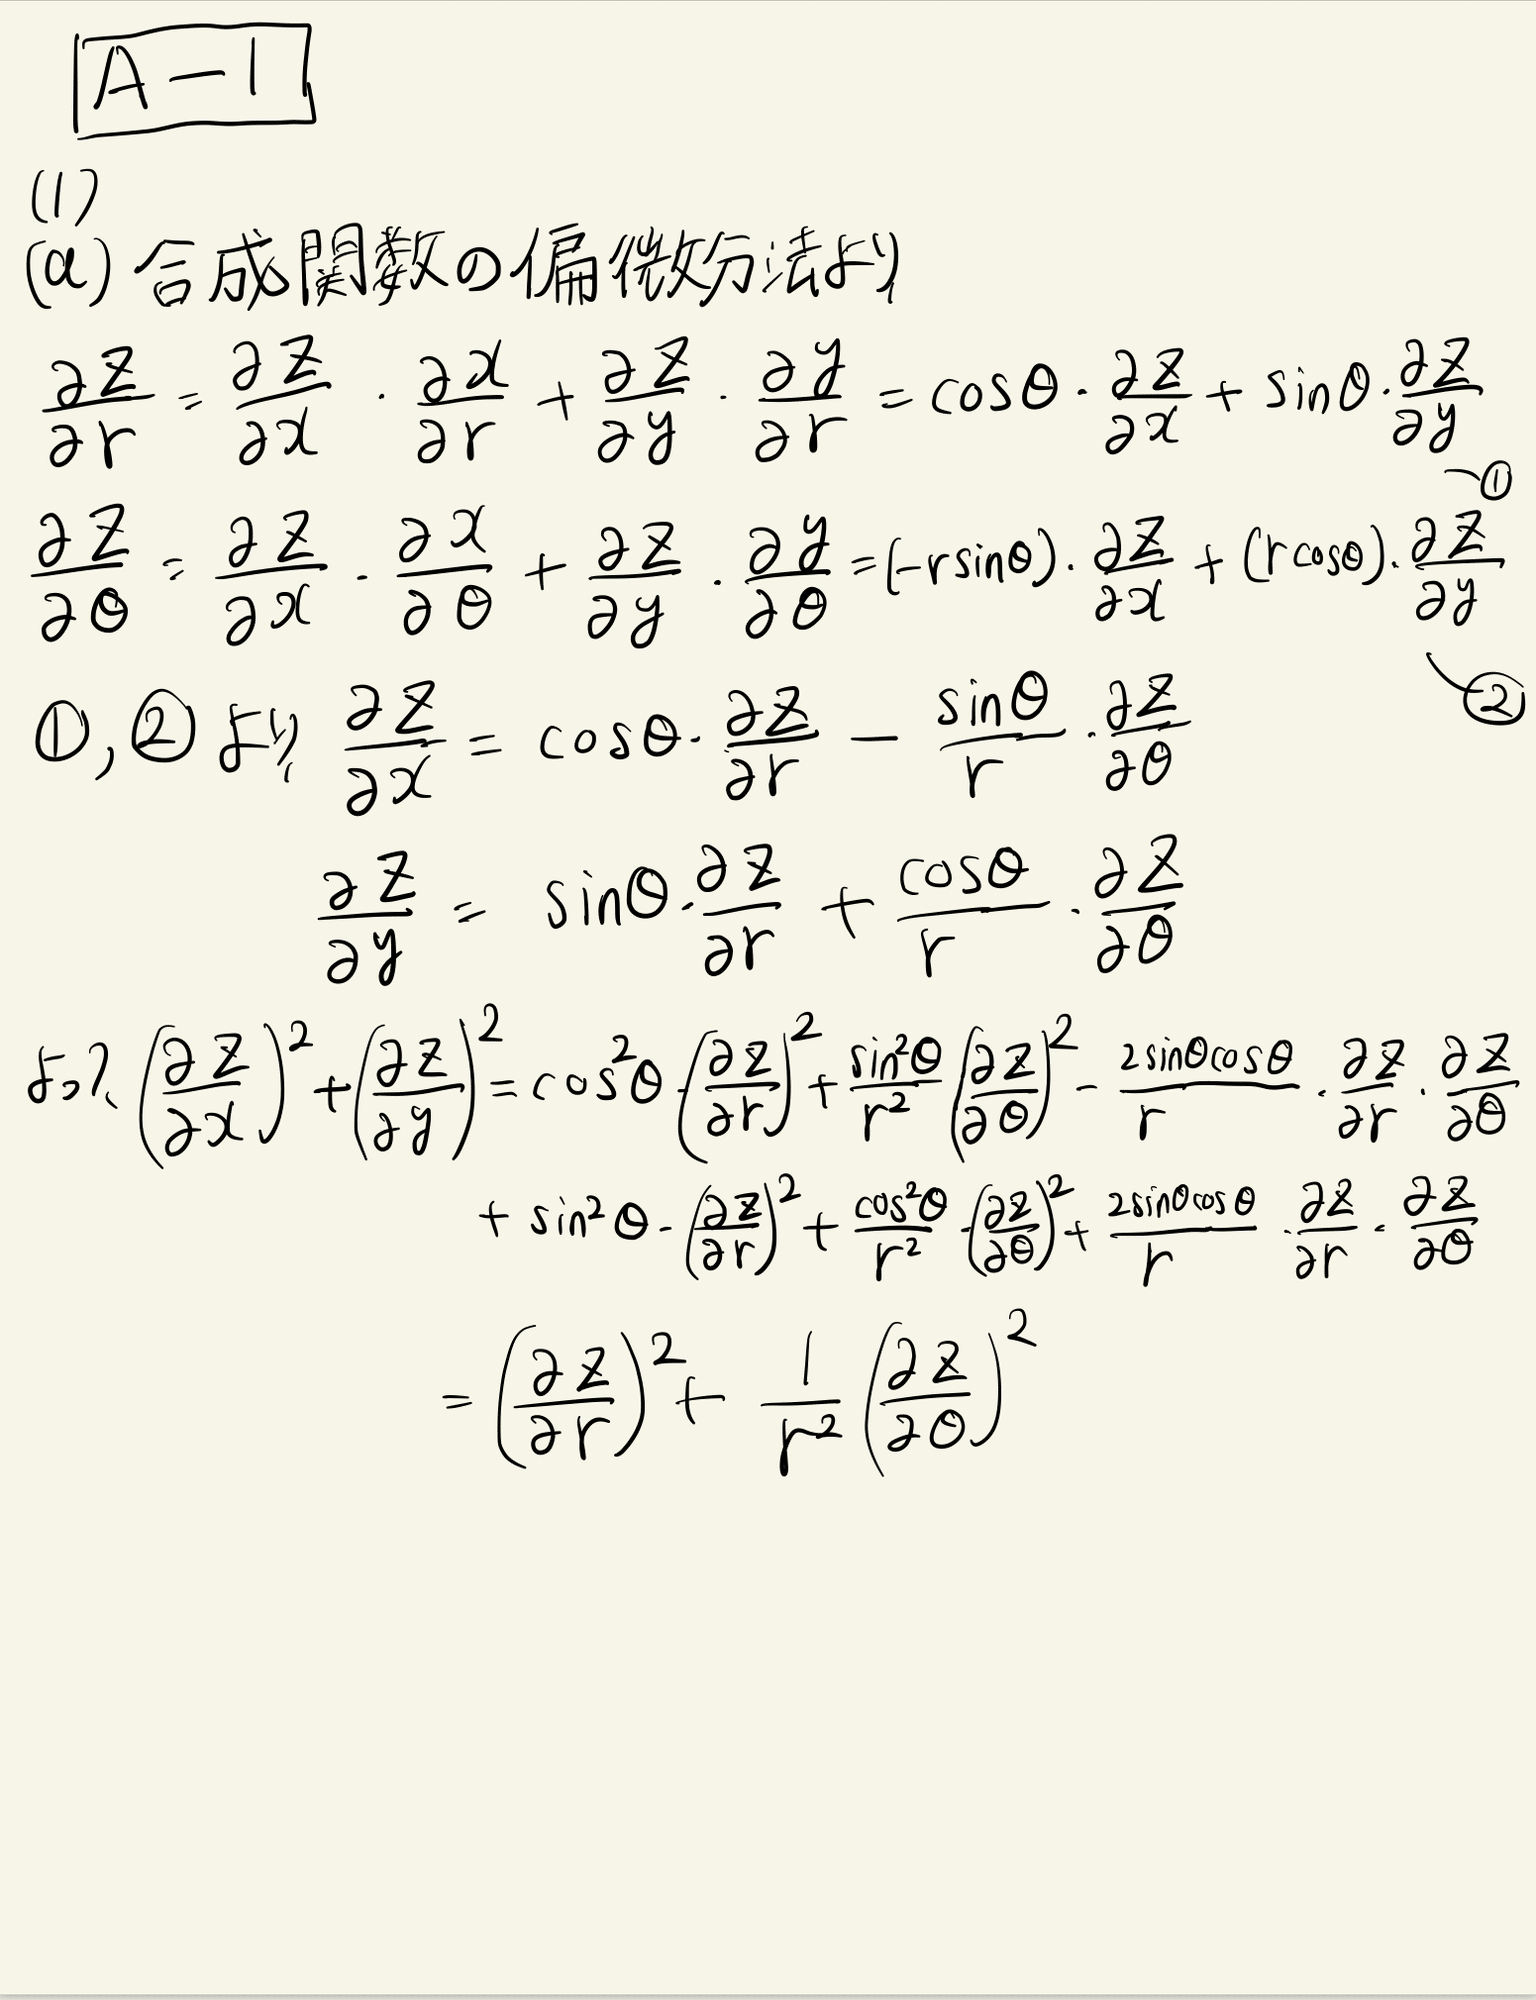 A-1
(1)
(a) 合成関数の偏微分法より
∂z/∂r = ∂z/∂x · ∂x/∂r + ∂z/∂y · ∂y/∂r = cosθ · ∂z/∂x + sinθ · ∂z/∂y ー①
∂z/∂θ = ∂z/∂x · ∂x/∂θ + ∂z/∂y · ∂y/∂θ = (-r sinθ) · ∂z/∂x + (r cosθ) · ∂z/∂y ー②
①, ② より, ∂z/∂x = cosθ · ∂z/∂r - sinθ/r · ∂z/∂θ
∂z/∂y = sinθ · ∂z/∂r + cosθ/r · ∂z/∂θ
よって, (∂z/∂x)² + (∂z/∂y)² = cos²θ · (∂z/∂r)² + sin²θ/r² (∂z/∂θ)² - 2sinθcosθ/r · ∂z/∂r · ∂z/∂θ
+ sin²θ · (∂z/∂r)² + cos²θ/r² · (∂z/∂θ)² + 2sinθcosθ/r · ∂z/∂r · ∂z/∂θ
= (∂z/∂r)² + 1/r² (∂z/∂θ)²